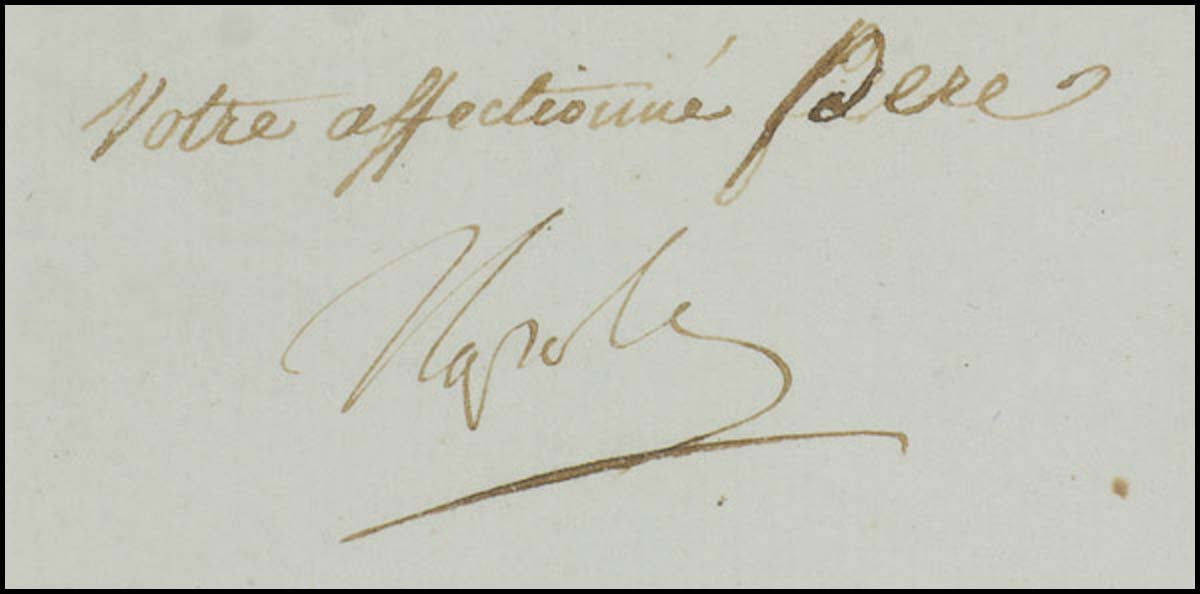 Votre affectionné Pere
Napole